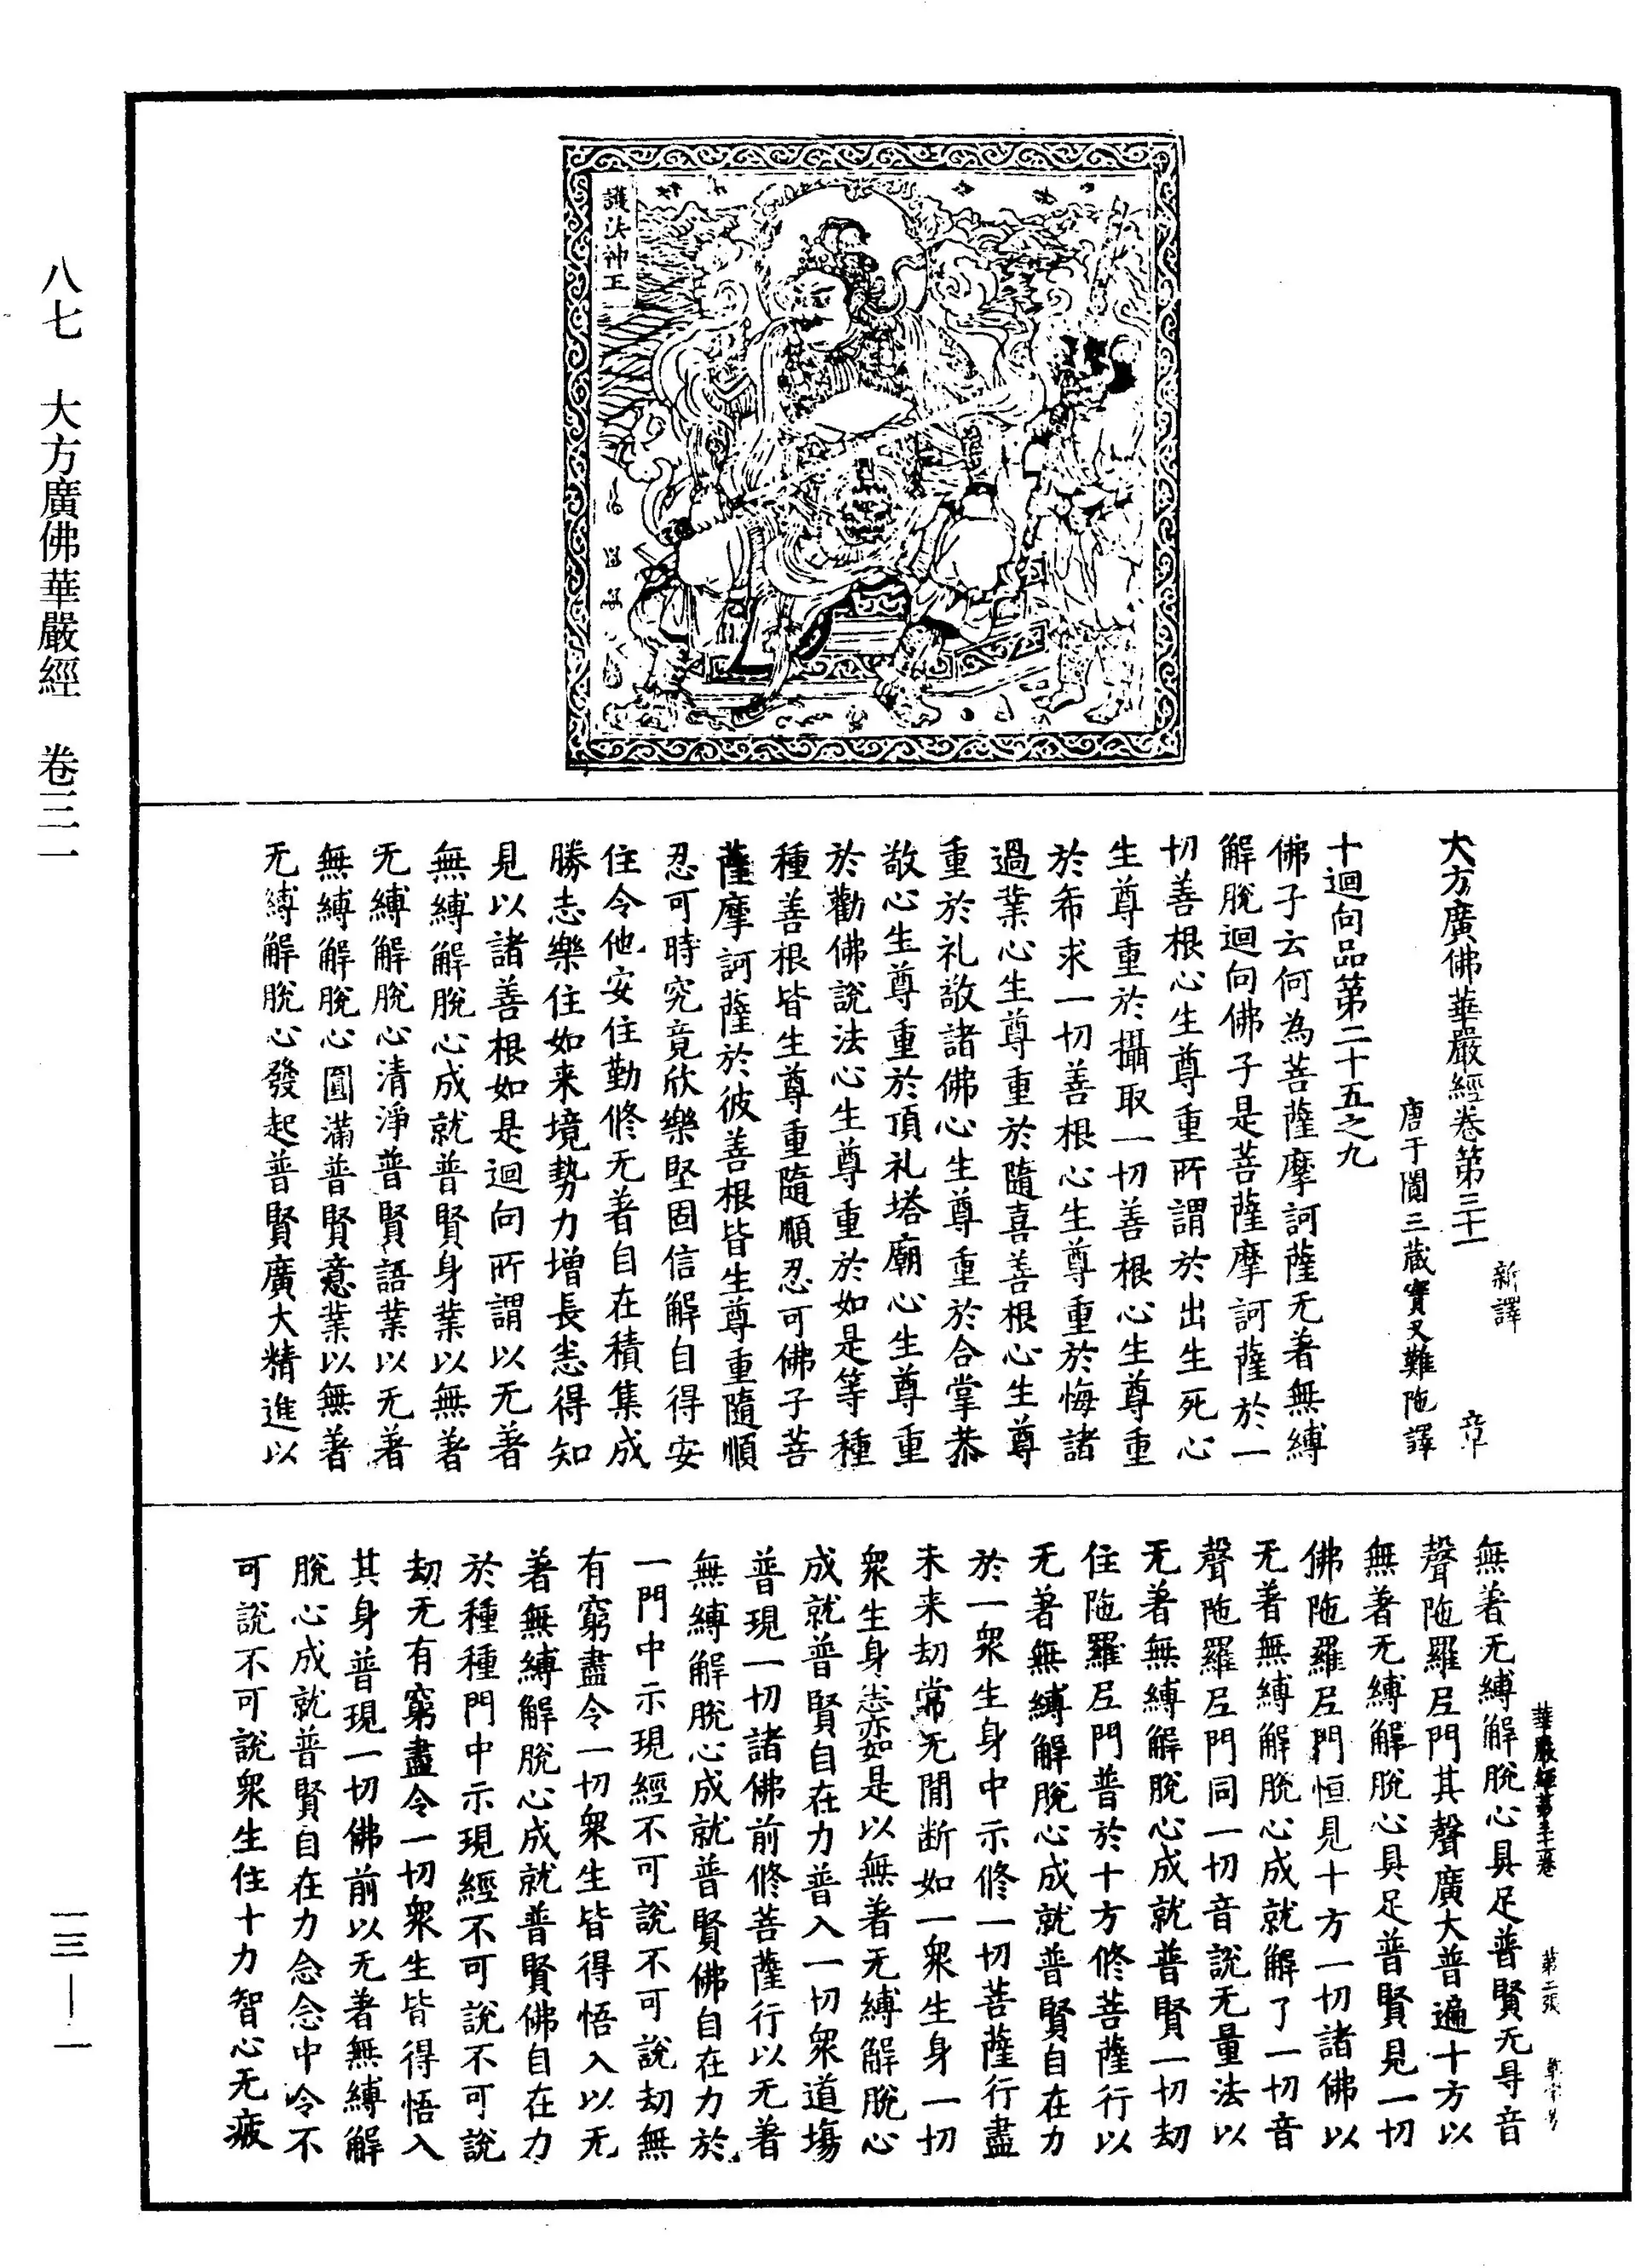 八七　大方廣佛華嚴經　卷三一
一三—一
護法神王
大方廣佛華嚴經卷第三十一
新譯
章
唐于闐三藏實叉難陁譯
十迴向品第二十五之九
佛子云何為菩薩摩訶薩无著無縛
解脫迴向佛子是菩薩摩訶薩於一
切善根心生尊重所謂於出生死心
生尊重於攝取一切善根心生尊重
於希求一切善根心生尊重於悔諸
過業心生尊重於隨喜善根心生尊
重於礼敬諸佛心生尊重於合掌恭
敬心生尊重於頂礼塔廟心生尊重
於勸佛說法心生尊重於如是等種
種善根皆生尊重隨順忍可佛子菩
薩摩訶薩於彼善根皆生尊重隨順
忍可時究竟欣樂堅固信解自得安
住令他安住勤修无著自在積集成
勝志樂住如来境勢力增長悉得知
見以諸善根如是迴向所謂以无著
無縛解脫心成就普賢身業以無著
无縛解脫心清淨普賢語業以无著
無縛解脫心圓滿普賢意業以無著
无縛解脫心發起普賢廣大精進以
華嚴經第三十一卷　第二張　章字号
無著无縛解脫心具足普賢无㝵音
聲陁羅尼門其聲廣大普遍十方以
無著无縛解脫心具足普賢見一切
佛陁羅尼門恒見十方一切諸佛以
无著無縛解脫心成就解了一切音
聲陁羅尼門同一切音說无量法以
无著無縛解脫心成就普賢一切劫
住陁羅尼門普於十方修菩薩行以
无著無縛解脫心成就普賢自在力
於一衆生身中示修一切菩薩行盡
未来劫常无間断如一衆生身一切
衆生身悉亦如是以無著无縛解脫心
成就普賢自在力普入一切衆道場
普現一切諸佛前修菩薩行以无著
無縛解脫心成就普賢佛自在力於
一門中示現經不可說不可說劫無
有窮盡令一切衆生皆得悟入以无
著無縛解脫心成就普賢佛自在力
於種種門中示現經不可說不可說
劫无有窮盡令一切衆生皆得悟入
其身普現一切佛前以无著無縛解
脫心成就普賢自在力念念中令不
可說不可說衆生住十力智心无疲